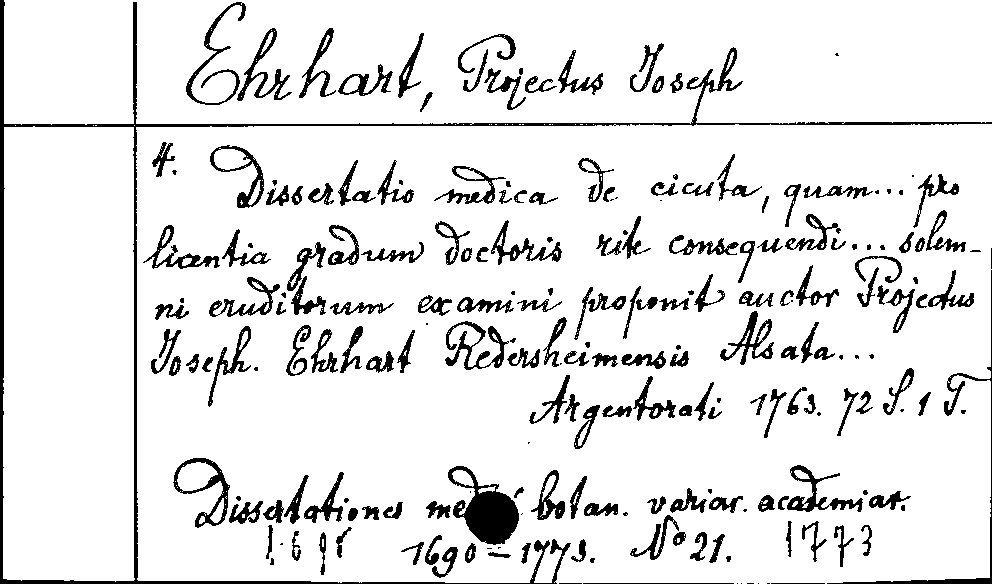 Ehrhart, Projectus Joseph
4.
Dissertatio medica de cicuta, quam... pro
licentia gradum doctoris rite consequendi... solem-
ni eruditorum examini proponit auctor Projectus
Joseph. Ehrhart Redersheimensis Alsata...
Argentorati 1763. 72 S. 1 T.
Dissertationes botan. variar. academiar.
1690 – 1773. No 21. 1773